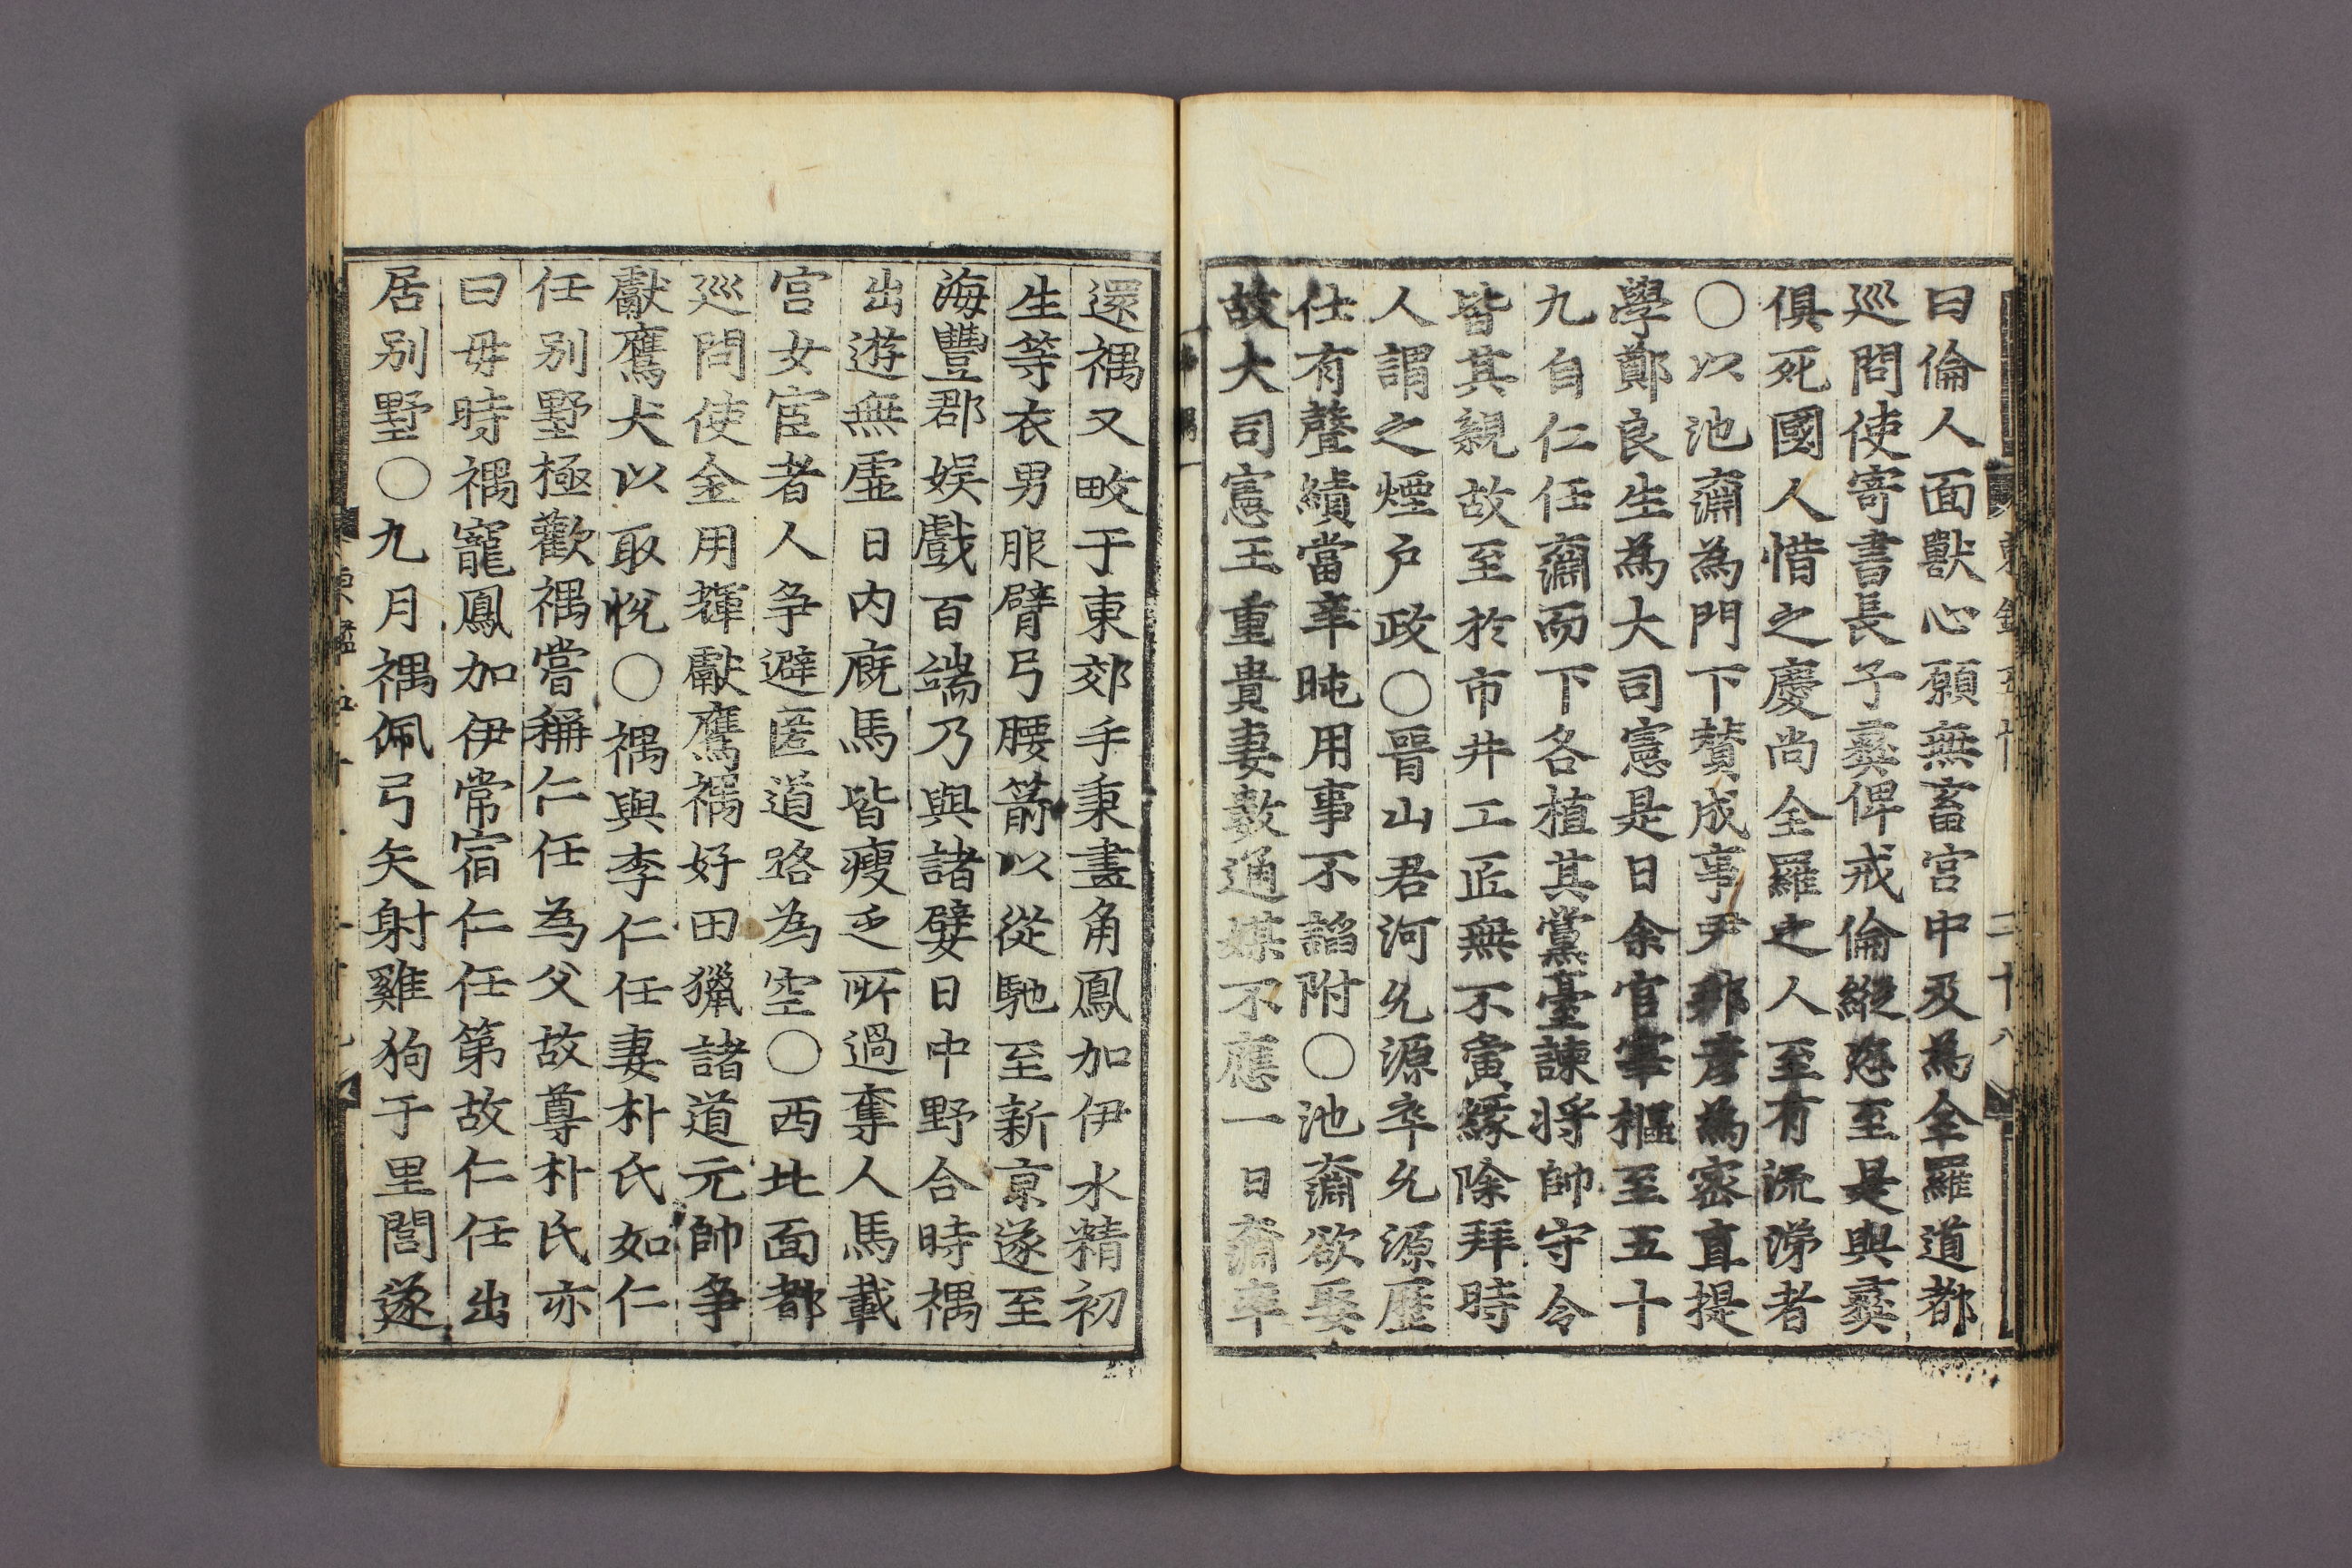 曰倫人面獸心願無畜宮中及為全羅道都
巡問使寄書長子彛俾戒倫縱恣至是與彛
俱死國人惜之慶尚全羅之人至有流涕者
○以池奫為門下賛成事尹邦彦為密直提
學鄭良生為大司憲是日余官宰樞至五十
九自仁任奫而下各植其黨臺諫將帥守令
皆其親故至於市井工匠無不夤緣除拜時
人謂之煙户政○晋山君河允源卒允源歷
仕有聲績當辛旽用事不諂附○池奫欲娶
故大司憲王重貴妻數通媒不應一日奫率
還禑又畋于東郊手秉畫角鳳加伊水精初
生等衣男服臂弓腰箭以從馳至新京遂至
海豐郡娱戲百端乃與諸嬖日中野合時禑
出遊無虛日内廐馬皆瘦乏所過奪人馬載
宮女宦者人争避匿道路為空○西北面都
巡問使金用輝獻鷹禑好田獵諸道元帥争
獻鷹犬以取悅○禑與李仁任妻朴氏如仁
任别墅極歡禑嘗稱仁任為父故尊朴氏亦
曰毋時禑寵鳳加伊常宿仁任第故仁任出
居别墅○九月禑佩弓矢射雞狗于里閭遂